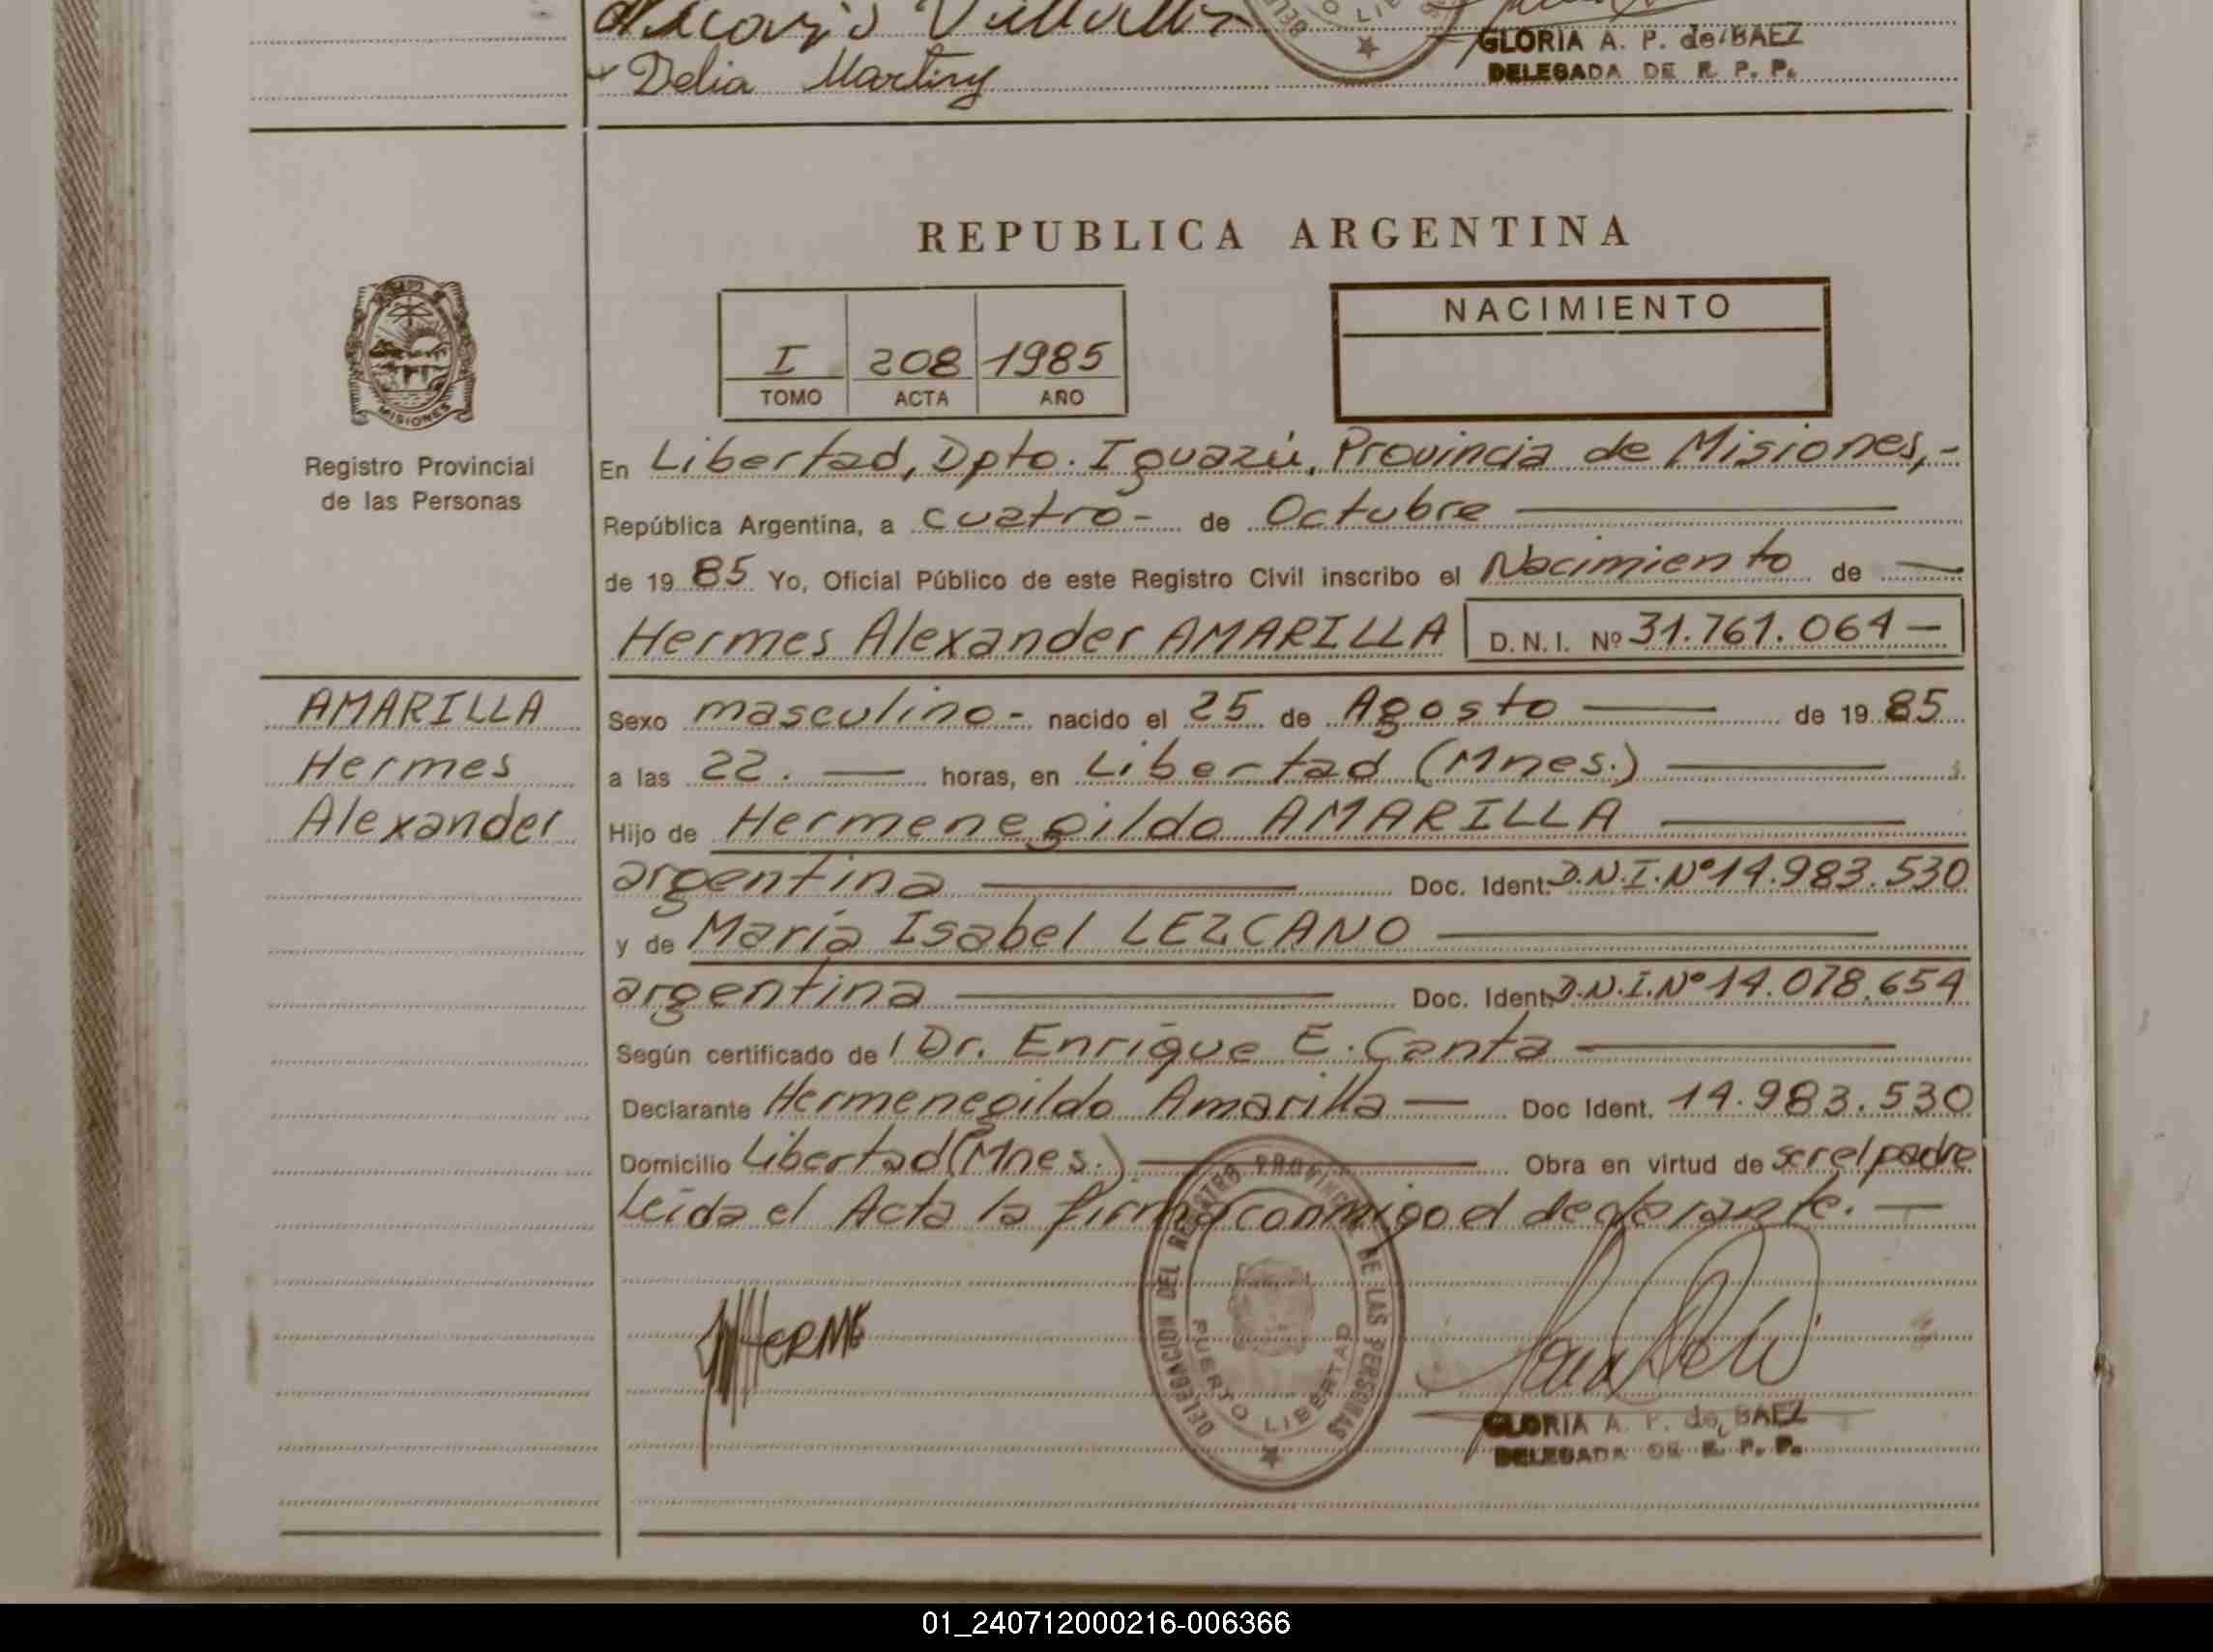 Delia Martiny
GLORIA A. P. de BAEZ
DELEGADA DE R. P. P.
REPUBLICA ARGENTINA
MISIONES
Registro Provincial
de las Personas
I 208 1985
TOMO ACTA AÑO
NACIMIENTO
En Libertad, Dpto. Iguazú, Provincia de Misiones,-
República Argentina, a cuatro- de Octubre
de 1985 Yo, Oficial Público de este Registro Civil inscribo el Nacimiento de
Hermes Alexander AMARILLA D.N.I. Nº 31.761.064-
AMARILLA
Hermes
Alexander
Sexo masculino- nacido el 25 de Agosto de 1985
a las 22. horas, en Libertad (Mnes.)
Hijo de Hermenegildo AMARILLA
argentina Doc. Ident. D.N.I.Nº14.983.530
y de María Isabel LEZCANO
argentina Doc. Ident. D.N.I.Nº14.078.654
Según certificado de l Dr. Enrique E. Canta
Declarante Hermenegildo Amarilla Doc Ident. 14.983.530
Domicilio Libertad (Mnes.) Obra en virtud de ser el padre
Leída el Acta la firma conmigo el declarante.
HERME
DELEGACION DEL REGISTRO PROVINCIAL DE LAS PERSONAS
PUERTO LIBERTAD
GLORIA A. P. de BAEZ
DELEGADA DE R. P. P.
01_240712000216-006366